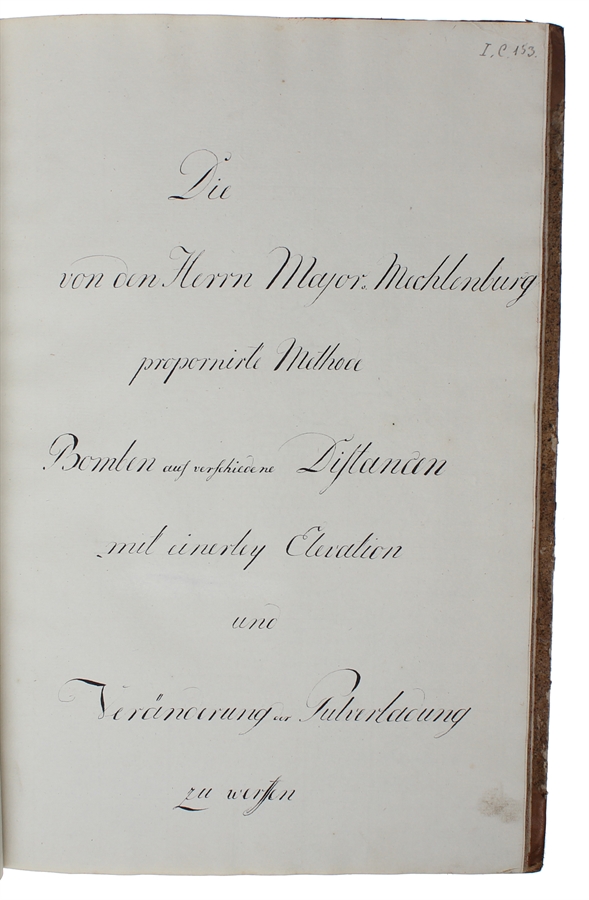 I. C. 153.
Die
von den Herrn Major v. Mechlenburg
propornirte Methode
Bomben auf verschiedene Distancen
mit einerley Elevation
und
Veränderung der Pulverladung
zu werffen